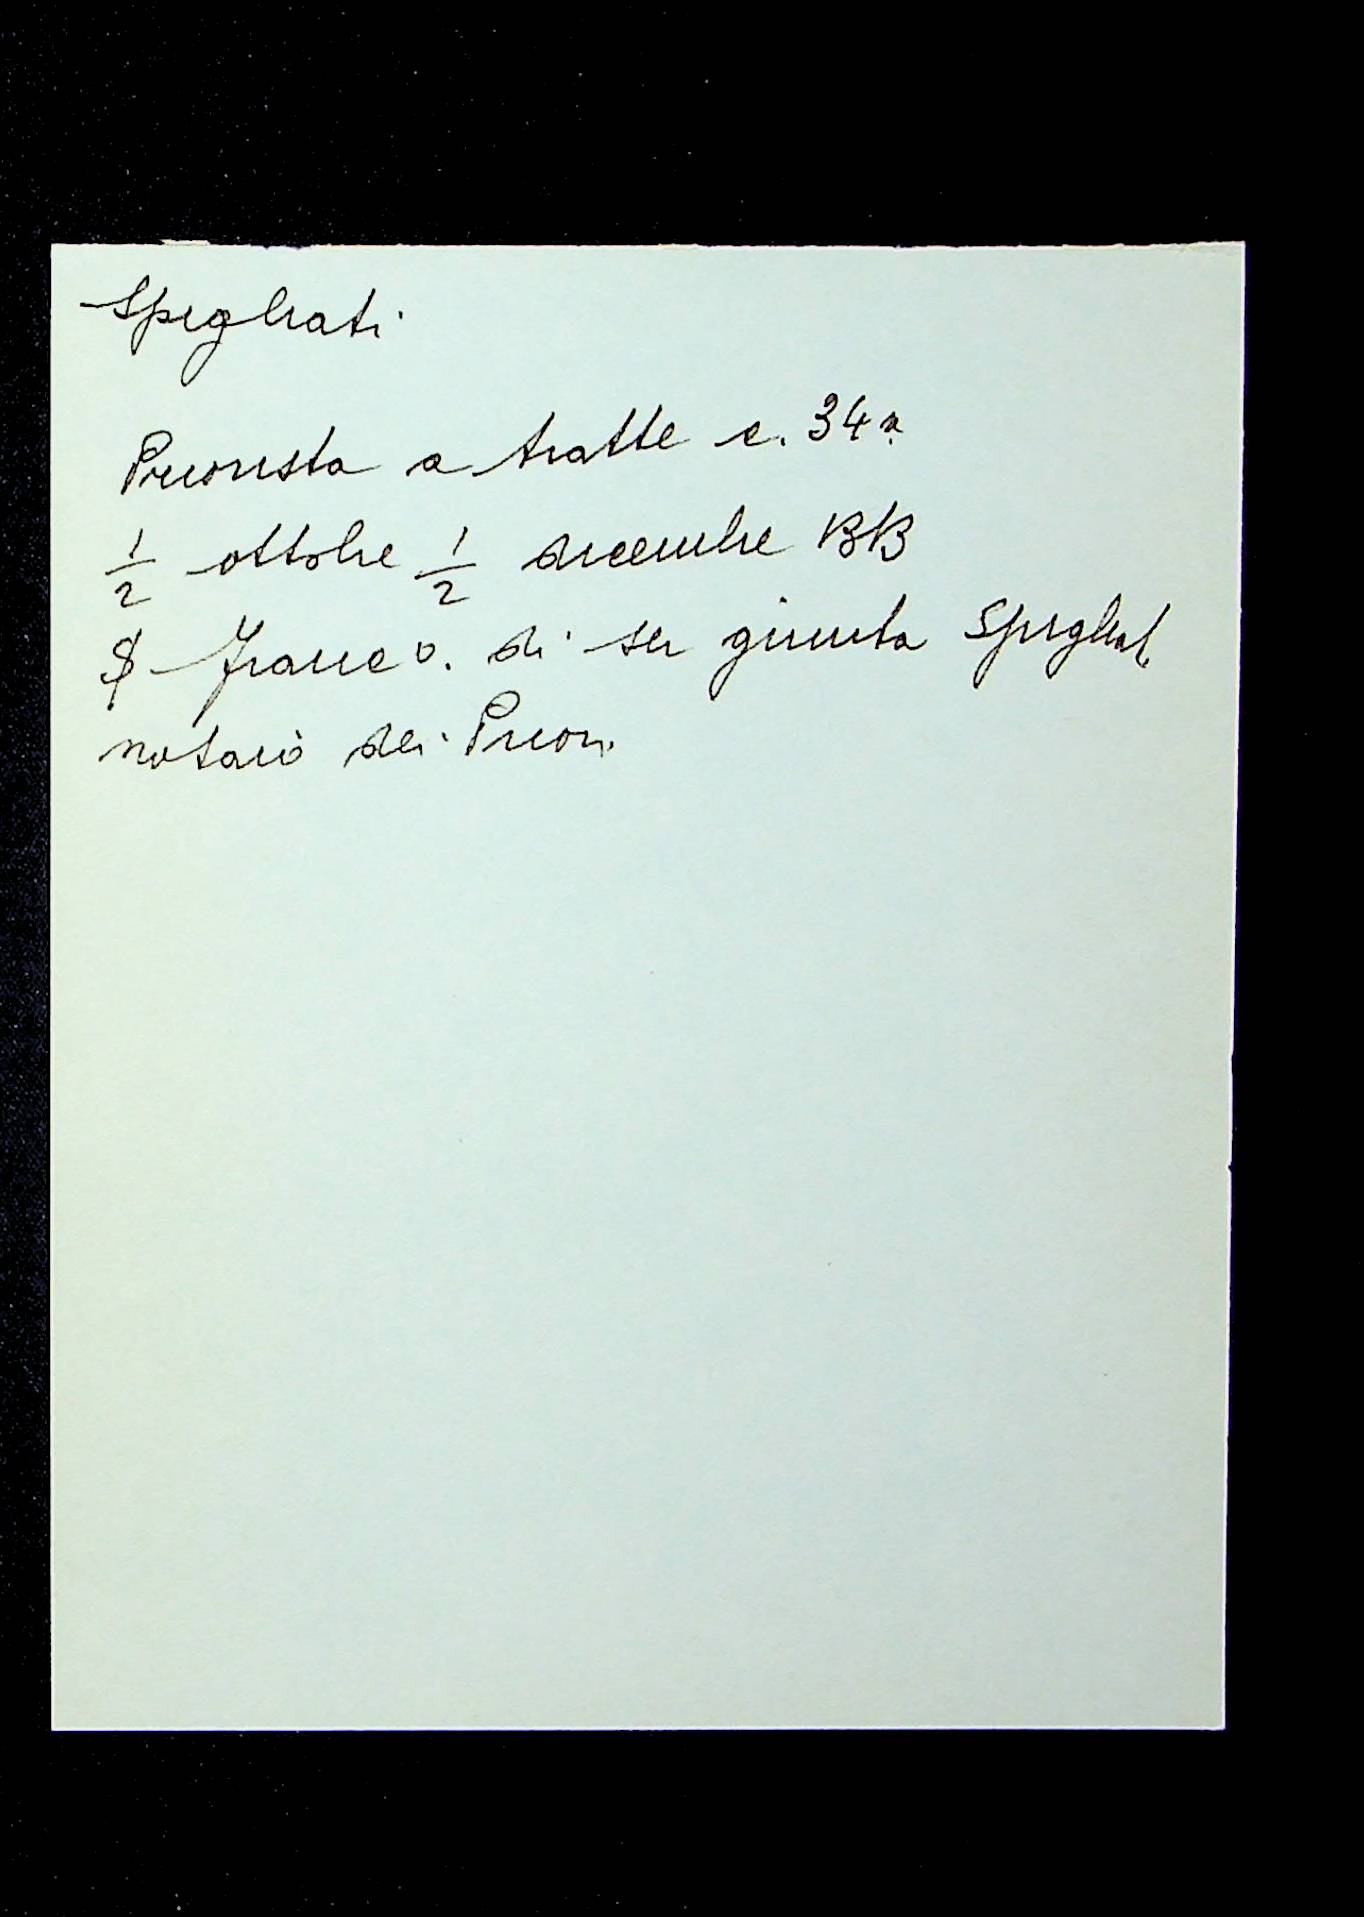 Spigliati
Priorista a tratte c. 34 a.
1/2 ottobre 1/2 dicembre BB
S Franc o. di ser giunta Spigliat.
notaio dei Priori